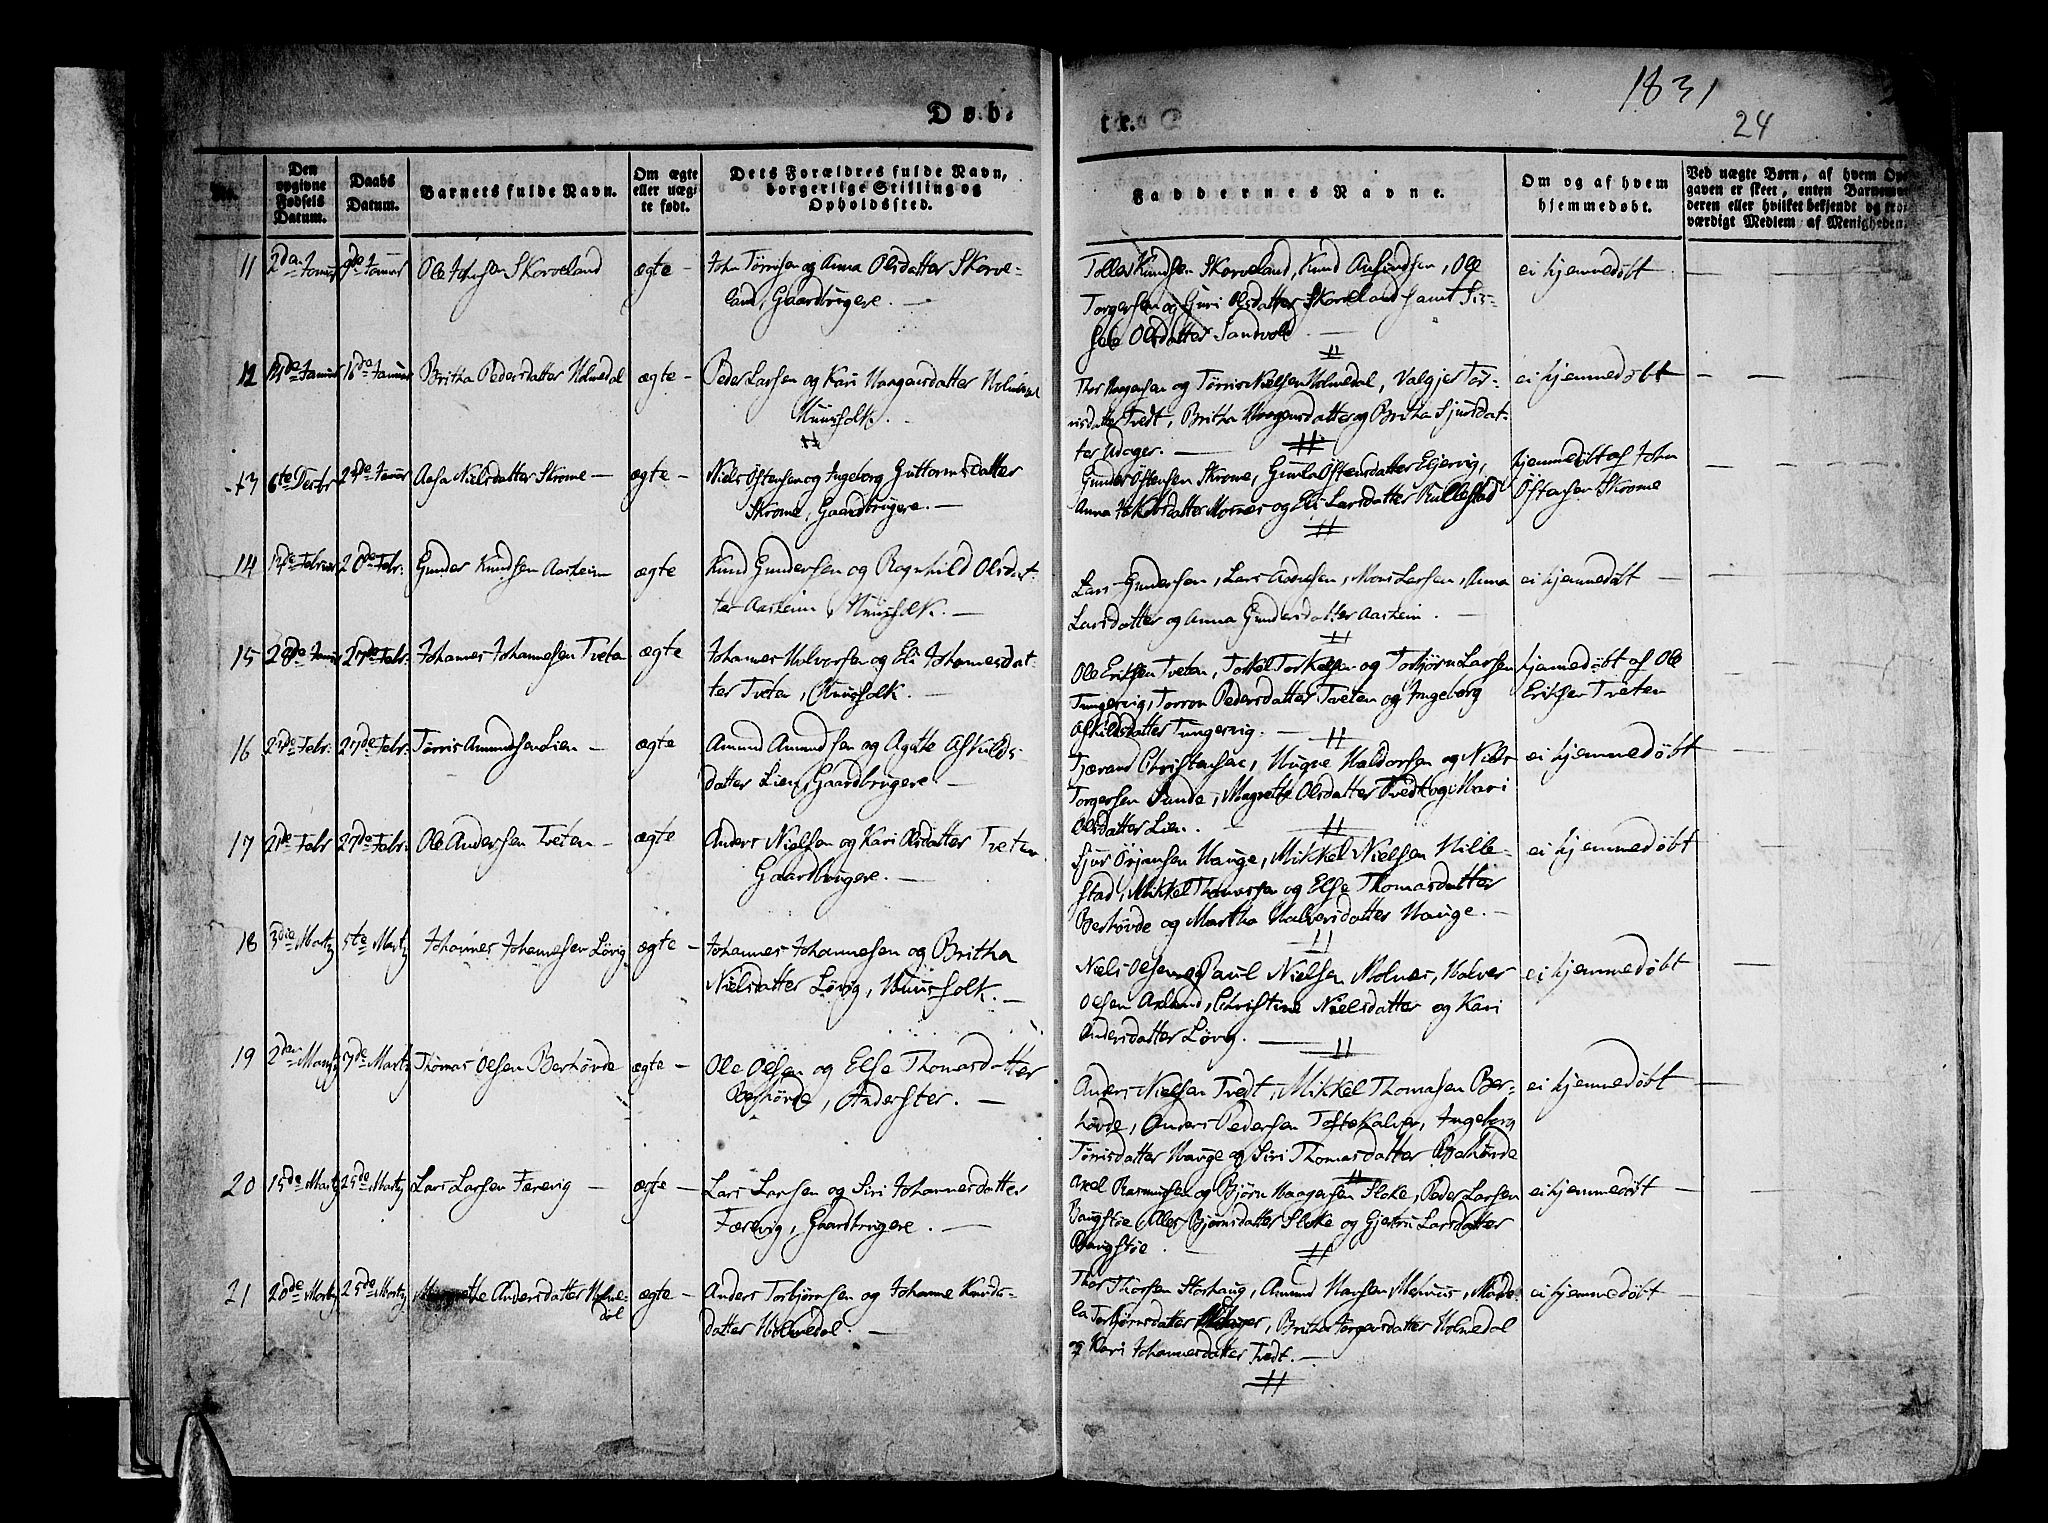 1831
24
Døb-
te.
No.
Den opgivne Fødsels Datum.
Daabs Datum.
Barnets fulde Navn.
Om ægte eller uægte født.
Dets Forældres fulde Navn, borgerlige Stilling og Opholdssted.
Faddernes Navne.
Om og af hvem hjemmedøbt.
Ved uægte Børn, af hvem Op-
gaven er skeet, enten Barnemo-
deren eller hvilket bekjendt og tro-
værdigt Medlem af Menigheden.
11 2den Januar 9de Januar Ole Johnsen Skorveland ægte –
John Tørrisen og Anna Olsdatter Skorve-
land, Gaardbrugere. –
Tolles Knudsen Skorveland, Knud Amundsen, Ole
Torgersen og Guri Olsdatter Skorveland samt Sis-
sele Olsdatter Sandvold –
ei hjemmedøbt
12 16de Januar Britha Pedersdatter Holmedal ægte –
Peder Larsen og Kari Haagensdatter Holmedal
Huusfolk.
Thor Haagensen og Tørris Nielsen Holmedal, Valgjer Tør-
risdatter Tvedt, Britha Haagensdatter og Britha Sjursdat-
ter Udager. –
ei hjemmedøbt
13 6te Decbr 23de Januar Aasa Nielsdatter Skrome – ægte –
Niels Østensen og Ingeborg Guttormsdatter
Skrome, Gaardbrugere. –
Gunder Østensen Skrome, Gunla Østensdatter
Anna Jakobsdatter og Eli Larsdatter Rullestad
hjemmedøbt af John
Østensen Skrome
14 20de Febr. Gunder Knudsen Aasheim ægte
Knud Gundersen og Ragnhild Olsdat-
ter Aasheim, Huusfolk. –
Lars Gundersen, Lars, Mons Larsen, Anna
Larsdatter og Anna Gundersdatter Aasheim.
ei hjemmedøbt –
15 27de Febr. Johannes Johannesen Tveta ægte
Johannes Halvorsen og Eli Johannesdat-
ter Tveten, Huusfolk. –
Ole Eriksen Tveten, Torkel Torkelsen og Torbjørn Larsen
Tungesvig, Torron Pedersdatter Tveten og Ingeborg
Askildsdatter Tungesvig. –
hjemmedøbt af Ole
Eriksen Tveten
16 27de Febr. Tørris Amundsen Lien – ægte
Amund Amundsen og Agatte Askilds-
datter Lien, Gaardbrugere –
Tjærand Christensen, Haldorsen og Niels
Torgersen Sunde, Magretha Olsdatter Tvedt og Mari
Olsdatter Lien.
ei hjemmedøbt
17 27de Febr. Ole Andersen Tveten – ægte
Anders Nielsen og Kari Olsdatter Tveten
Gaardbrugere. –
Sjur Ørjansen Hauge, Mikkel Nielsen Hille-
stad, Mikkel Thomassen og Else Thomasdatter
Berhövde og Martha Halvorsdatter Hauge. –
ei hjemmedøbt
18 3die Martz 5te Martz Johannes Johannesen Lövig ægte –
Johannes Johannesen og Britha
Nielsdatter Lövig, Huusfolk. –
Niels Olsen og Paul Nielsen Molnes, Halvor
Olsen Axland, Christine Nielsdatter og Kari
Andersdatter Lövig. –
ei hjemmedøbt
19 2den Martz 7de Martz Thomas Olsen Berhövde ægte –
Ole Olsen og Else Thomasdatter
Berhövde, Inderster. –
Anders Nielsen Tvedt, Mikkel Thomasen Ber-
hövde, Anders Pedersen Toftekalven, Ingeborg
Tørrisdatter Hauge og Siri Thomasdatter Berhövde
ei hjemmedøbt
20 15de Martz 25de Martz Lars Larsen Færevig – ægte –
Lars Larsen og Siri Johannesdatter
Færevig, Gaardbrugere. –
Axel Rasmussen og Bjørn Haagensen Sloke, Peder Larsen
Baugstøe, Bjørnsdatter Sloke og Gjertru Larsdatter
Baugstøe.
ei hjemmedøbt –
21 20de Martz 25de Martz Andersdatter Holme-
dal ægte –
Anders Torbjørnsen og Johanne Knuds-
datter Holmedal. –
Thor Thorsen Storhaug, Amund Hansen
Torbjørnsdatter Udager, Britha Torgersdatter Holmedal
og Kari Johannesdatter Tvedt. –
ei hjemmedøbt –